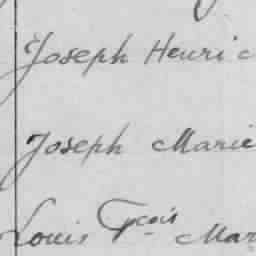 Joseph Henri c
Joseph Marie
Louis Fçois Mar